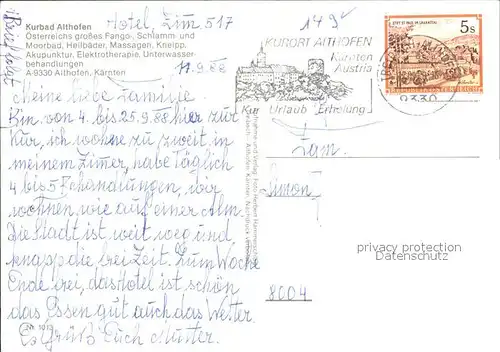 Hotel, Zim. 517
Kurbad Althofen
Österreichs großes Fango-, Schlamm- und
Moorbad, Heilbäder, Massagen, Kneipp,
Akupunktur, Elektrotherapie, Unterwasser-
behandlungen
A-9330 Althofen, Kärnten
11.9.88
Meine liebe Familie
Bin von 4. bis 25.9.88 hier zur
Kur, ich wohne zu zweit in
meinem Zimer, habe Täglich
4 bis 5 Behandlungen, wir
wohnen wie auf einer Alm
Die Stadt ist weit weg und
knapp die frei Zeit. Zum Woche
Ende frei, das Hotel ist schön
das Essen gut auch das Wetter
Es Grüßt Euch Mutter.
Brief folgt
149
KURORT ALTHOFEN
Kärnten
Austria
Kur Urlaub Erholung
9330
5 S
REPUBLIK ÖSTERREICH
Fam.
Simon
8004
privacy protection
Datenschutz